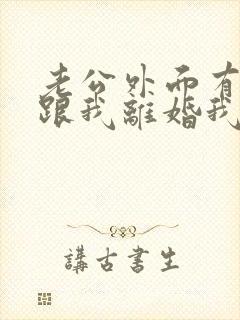 老公外面有
跟我離婚我
講古書生